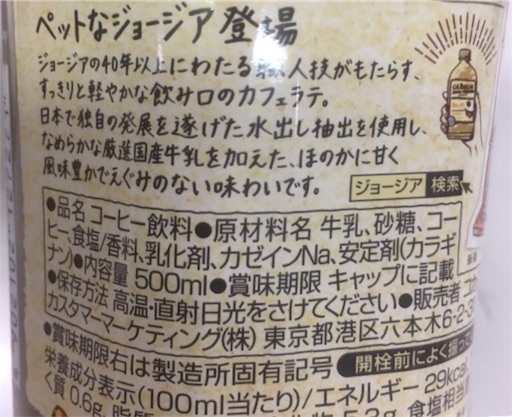 ペットなジョージア登場
ジョージアの40年以上にわたる職人技がもたらす、
すっきりと軽やかな飲み口のカフェラテ。
日本で独自の発展を遂げた水出し抽出を使用し、
なめらかな厳選国産牛乳を加えた、ほのかに甘く
風味豊かでえぐみのない味わいです。
ジョージア 検索
●品名 コーヒー飲料●原材料名 牛乳、砂糖、コー
ヒー、食塩/香料、乳化剤、カゼインNa、安定剤(カラギ
ナン)●内容量 500ml●賞味期限 キャップに記載
●保存方法 高温・直射日光をさけてください●販売者
カスタマーマーケティング(株) 東京都港区六本木6-2-3
●賞味期限右は製造所固有記号 開栓前によく振っ
栄養成分表示(100ml当たり)/エネルギー 29kcal
く質 0.6g、脂質 食塩相当